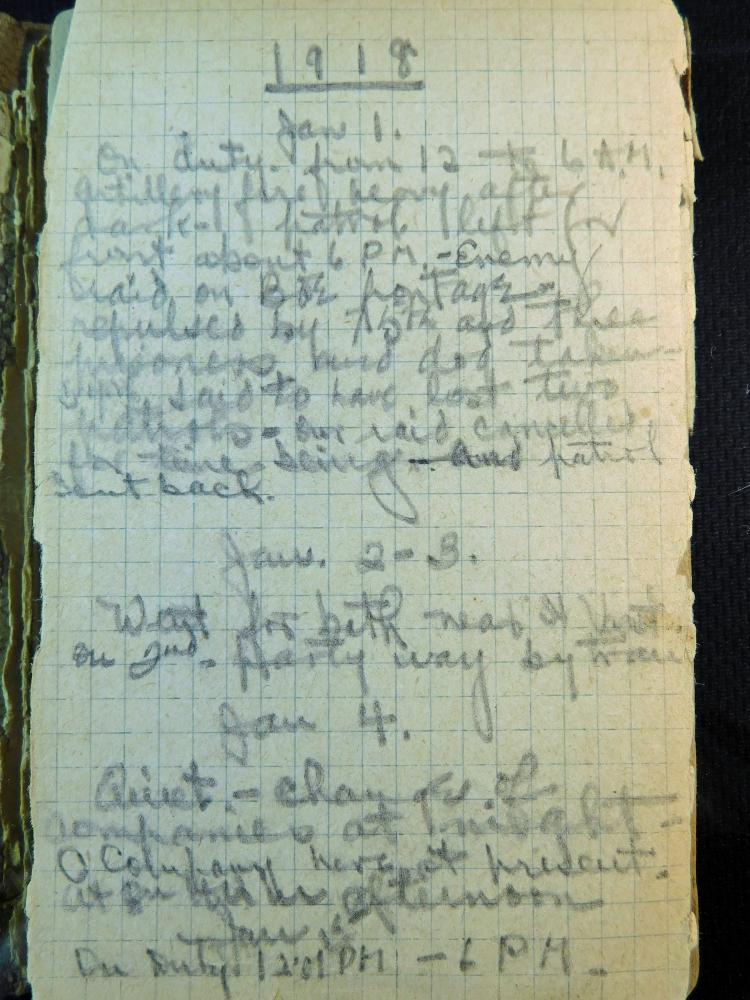 1918
Jan 1.
On duty from 12 to 6 A.M.
Artillery fire heavy after
dark - patrol left for
front about 6 P.M. - Enemy
raid on
repulsed by 75th and three
prisoners and dog taken -
said to have lost two
patrols - our raid cancelled
for time being - And patrol
sent back.
Jan. 2-3.
Went for bath near St
on 2nd. - party way by
Jan 4.
Quiet. - change of
companies at night -
Company here at present.
At afternoon
Jan
On Duty. 12:01 PM - 6 P.M.